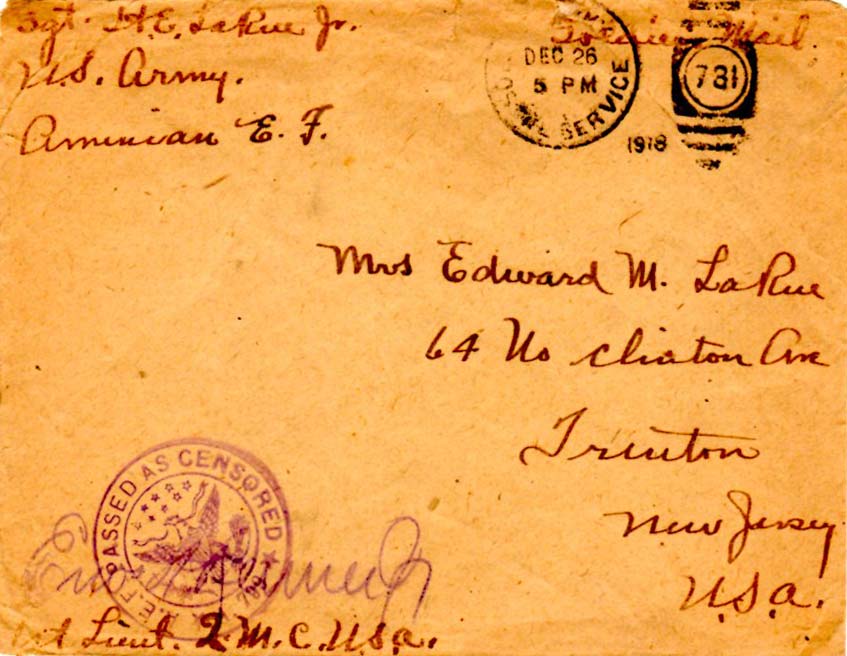 Sgt. H. E. LaRue Jr.
U.S. Army.
American E. F.
Soldier's Mail.
DEC 26
5 PM
SERVICE
1918
781
Mrs Edward M. LaRue
64 No Clinton Ave
Trenton
New Jersey
U.S.a.
A.E.F. PASSED AS CENSORED
Lieut. Q.M.C.U.S.a.